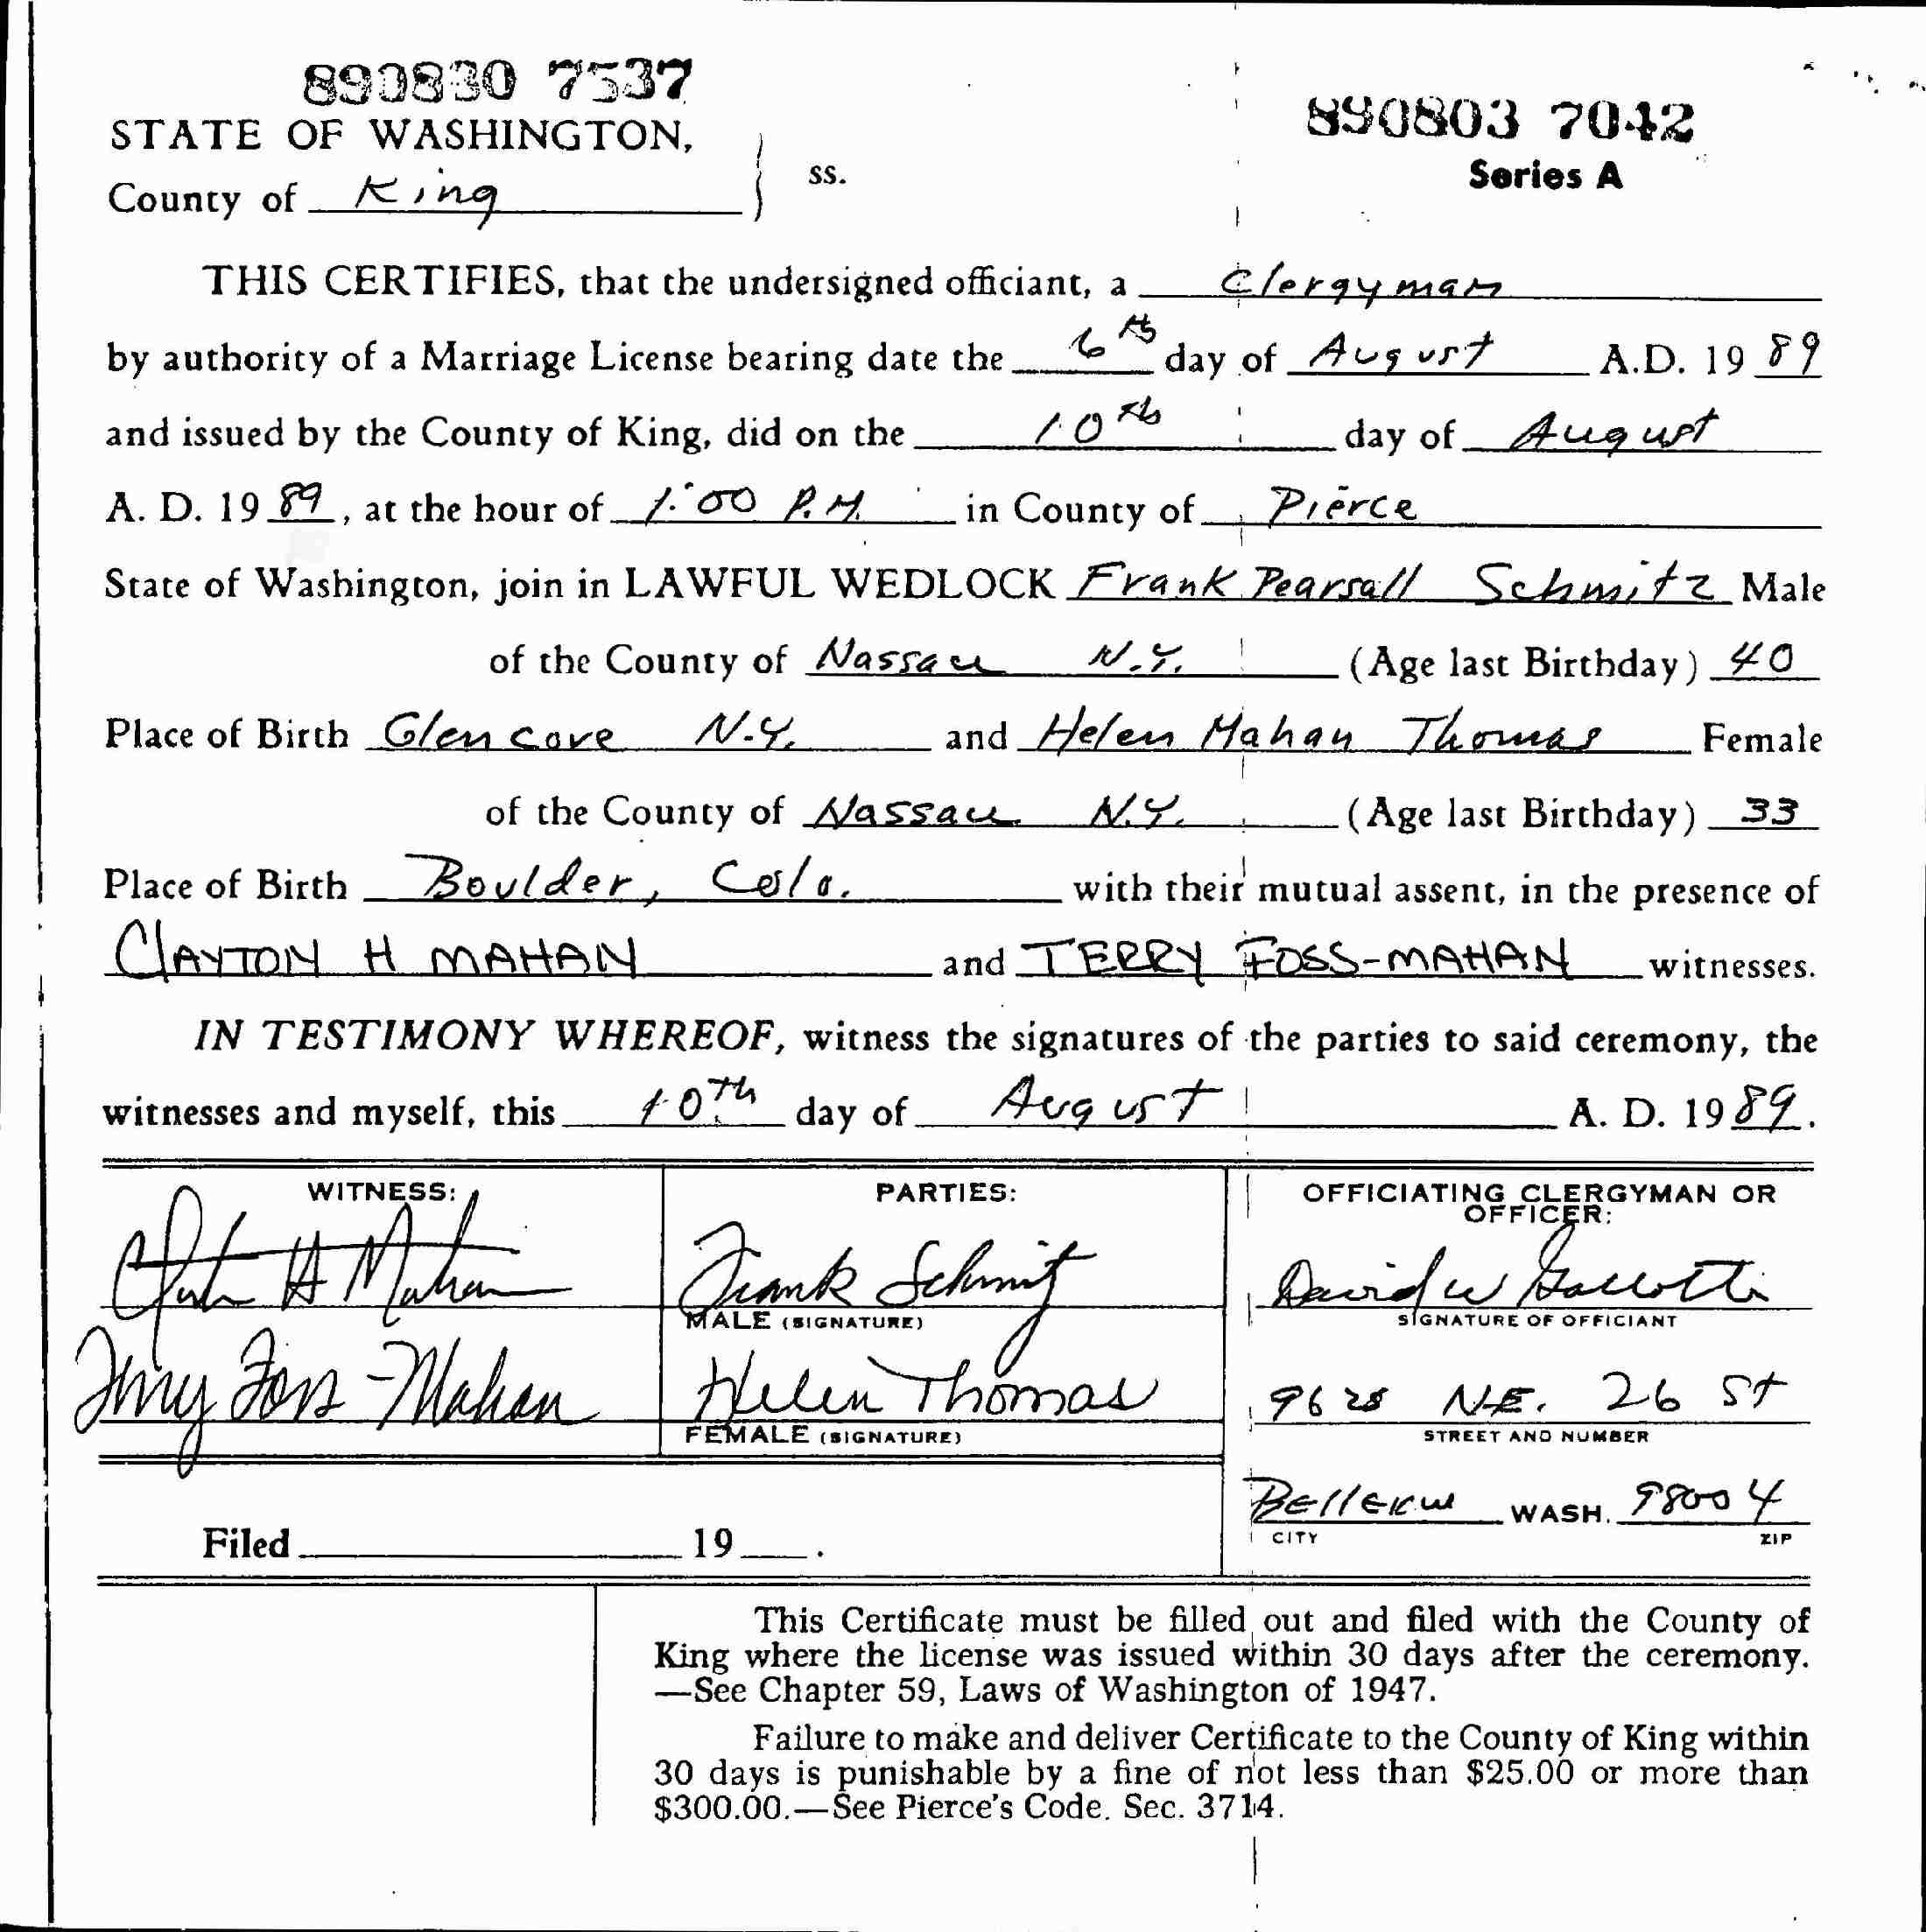 890830 7537
890803 7042
Series A
STATE OF WASHINGTON,
County of King ss.
THIS CERTIFIES, that the undersigned officiant, a Clergyman
by authority of a Marriage License bearing date the 6th day of August A.D. 19 89
and issued by the County of King, did on the 10th day of August
A. D. 19 89, at the hour of 1:00 P.M. in County of Pierce
State of Washington, join in LAWFUL WEDLOCK Frank Pearsall Schmitz Male
of the County of Nassau N.Y. (Age last Birthday) 40
Place of Birth Glen cove N.Y. and Helen Mahan Thomas Female
of the County of Nassau N.Y. (Age last Birthday) 33
Place of Birth Boulder, Colo. with their mutual assent, in the presence of
CLAYTON H MAHAN and TERRY FOSS-MAHAN witnesses.
IN TESTIMONY WHEREOF, witness the signatures of the parties to said ceremony, the
witnesses and myself, this 10Th day of August A. D. 19 89.
WITNESS: PARTIES: OFFICIATING CLERGYMAN OR
OFFICER:
H Mahan Frank Schmitz David W
MALE (SIGNATURE) SIGNATURE OF OFFICIANT
Terry Foss-Mahan Helen Thomas 9628 N.E. 26 St
FEMALE (SIGNATURE) STREET AND NUMBER
WASH. 98004
CITY ZIP
Filed 19 .
This Certificate must be filled out and filed with the County of
King where the license was issued within 30 days after the ceremony.
—See Chapter 59, Laws of Washington of 1947.
Failure to make and deliver Certificate to the County of King within
30 days is punishable by a fine of not less than $25.00 or more than
$300.00.—See Pierce's Code. Sec. 3714.